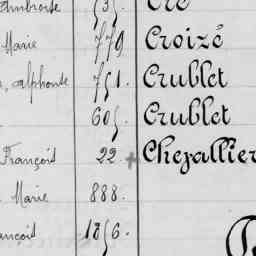 Ambroise 535. Cré
Marie 779 Croizé
, alphonse 751. Crublet
605. Crublet
François 22. + Chevallier
Marie 888.
ançois 1856.